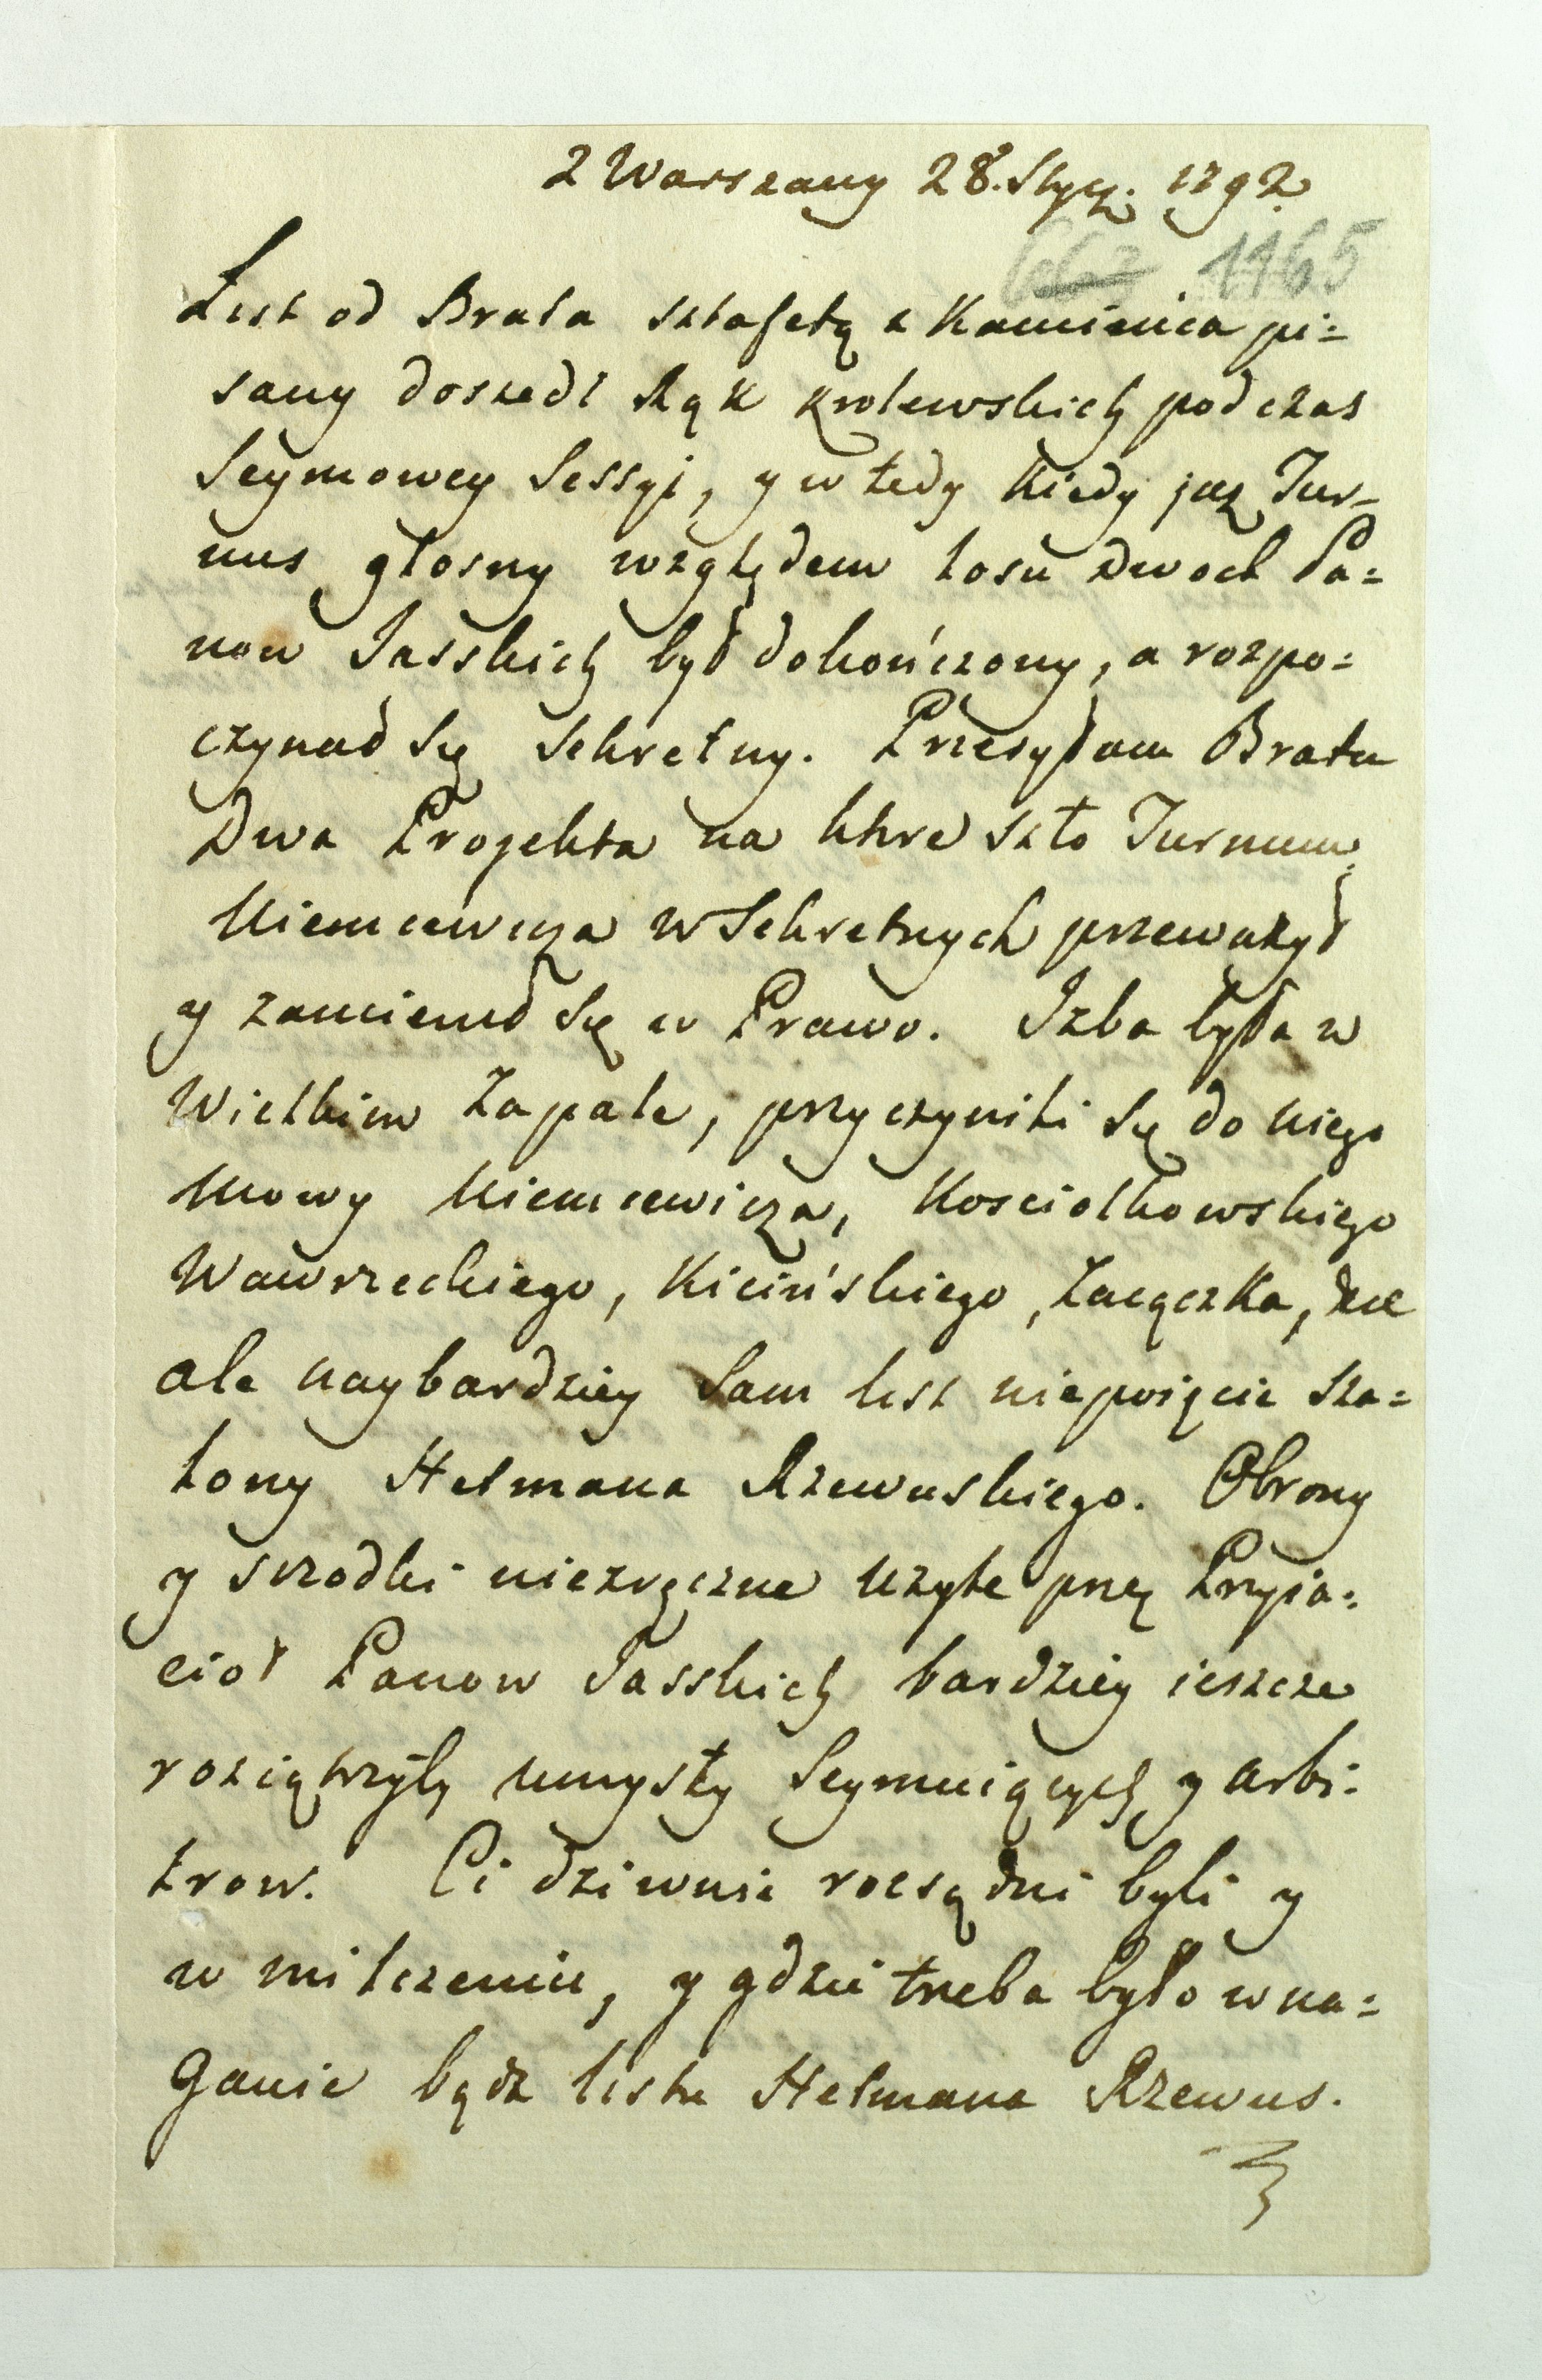 z Warszawy 28. Stycz. 1792.
662 1165
List od Brata sztafetą z Kamieńca pi=
sany doszedł Rąk Krolewskich podczas
Seymowey Sessyi, y w tedy kiedy juz Tur=
nus głosny względem losu Dwoch Pa=
now Jasskich był dokończony, a rozpo=
czynał Się Sekretny. Przesyłam Bratu
Dwa Projekta na ktore szło Turnum,
Niemcewicza w Sekretnych przewazył
y zamienił Się w Prawo. Izba była w
Wielkim Zapale, przyczyniłi Się do niego
Mowy Niemcewicza, Kosciołkowskiego
Wawrzeckiego, Kicińskiego, Zaiączka,
ale naybardziey Sam list niepoięcie sza=
lony Hetmana Rzewuskiego. Obrony
y srzodki niezręczne uzyte przez Przyia=
cioł Panow Jasskich bardziey ieszcze
roziątrzyły umysły Seymuiących y arbi=
trow. Ci dziwnie rozsądni byli y
w milczeniu, y gdzie trzeba było w na=
ganie bądz listu Hetmana Rzewus.